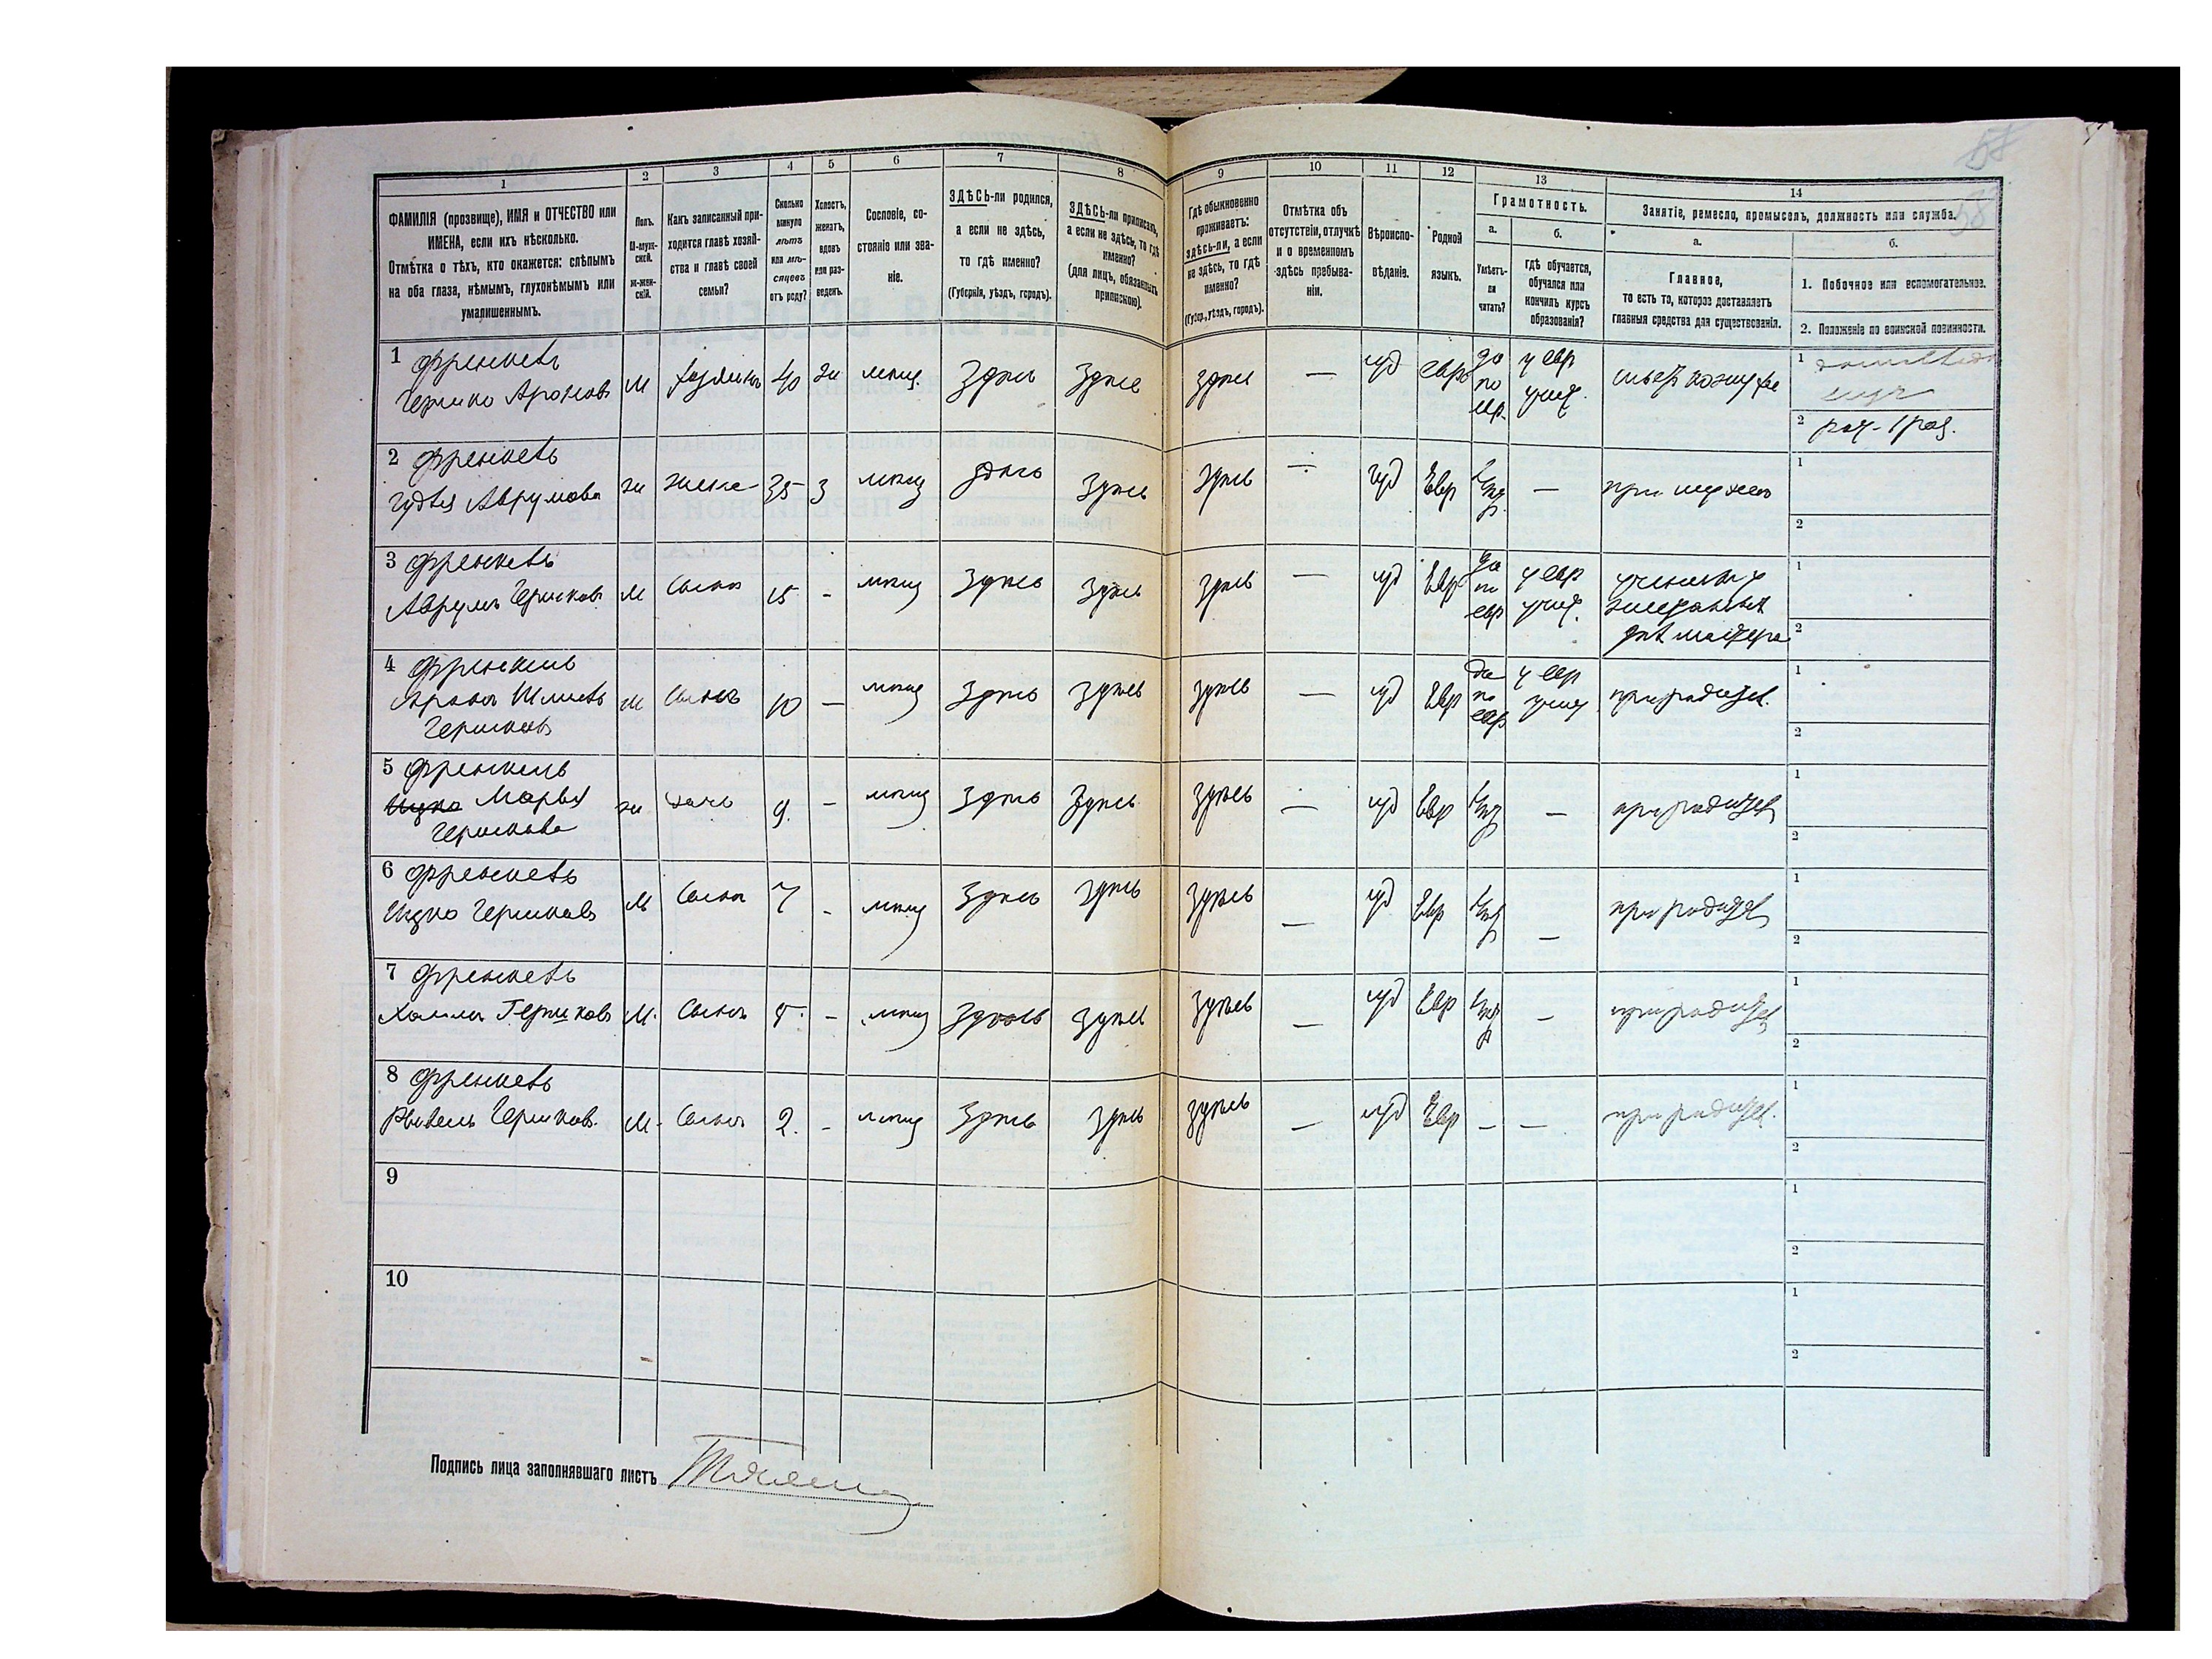 58
58
1
2
3
4
5
6
7
8
9
10
11
12
13
14
ФАМИЛІЯ (прозвище), ИМЯ и ОТЧЕСТВО или
ИМЕНА, если ихъ нѣсколько.
Отмѣтка о тѣхъ, кто окажется: слѣпымъ
на оба глаза, нѣмымъ, глухонѣмымъ или
умалишеннымъ.
Полъ.
М-муж-
ской.
ж-жен-
скій.
Какъ записанный при-
ходится главѣ хозяй-
ства и главѣ своей
семьи?
Сколько
минуло
лѣтъ
или мѣ-
сяцевъ
отъ роду?
Холостъ,
женатъ,
вдовъ
или раз-
веденъ.
Сословіе, со-
стояніе или зва-
ніе.
ЗДѢСЬ-ли родился,
а если не здѣсь,
то гдѣ именно?
(Губернія, уѣздъ, городъ).
ЗДѢСЬ-ли приписанъ,
а если не здѣсь, то гдѣ
именно?
(для лицъ, обязанныхъ
припискою).
Гдѣ обыкновенно
проживаетъ:
здѣсь-ли, а если
не здѣсь, то гдѣ
именно?
(Губер., уѣздъ, городъ).
Отмѣтка объ
отсутствіи, отлучкѣ
и о временномъ
здѣсь пребыва-
ніи.
Вѣроиспо-
вѣданіе.
Родной
языкъ.
Грамотность.
а.
Умѣетъ-
ли
читать?
б.
гдѣ обучается,
обучался или
кончилъ курсъ
образованія?
Занятіе, ремесло, промыселъ, должность или служба.
а.
Главное,
то есть то, которое доставляетъ
главныя средства для существованія.
б.
1. Побочное или вспомогательное.
2. Положеніе по воинской повинности.
1 Френкель
Гершко Ароновъ
М
хозяинъ
40
ж
мѣщ.
Здѣсь
Здѣсь
здѣсь
—
іуд
евр
да
по
евр.
у евр
учит.
шьетъ кожухе
1
2
2 Френкель
Аврумова
ж
жена
35
з
мѣщ
здѣсь
здѣсь
здѣсь
—
іуд
Евр
—
при мужѣ
1
2
3 Френкель
Аврумъ Гершковъ
М
Сынъ
15
-
мѣщ
Здѣсь
здѣсь
здѣсь
—
іуд
Евр
да
по
евр
у евр
учит.
1
2
4 Френкель
Аронъ Шмиль
Гершковъ
М
Сынъ
10
—
мѣщ
Здѣсь
здѣсь
здѣсь
—
іуд
Евр
да
по
евр
у евр
учит
при родител.
1
2
5 Френкель
Марья
Гершкова
ж
дочь
9.
-
мѣщ
Здѣсь
Здѣсь
здѣсь
—
іуд
Евр
—
при родител
1
2
6 Френкель
Ицко Гершковъ
М
Сынъ
7
-
мѣщ
Здѣсь
здѣсь
здѣсь
—
іуд
Евр
—
при родител
1
2
7 Френкель
Хаимъ Гершковъ
М.
Сынъ
5.
-
мѣщ
Здѣсь
здѣсь
здѣсь
—
іуд
Евр
—
при родител
1
2
8 Френкель
Гершковъ.
М-
Сынъ
2.
-
мѣщ
Здѣсь
здѣсь
здѣсь
—
іуд
Евр
—
—
при родител.
1
2
9
1
2
10
1
2
Подпись лица заполнявшаго листъ